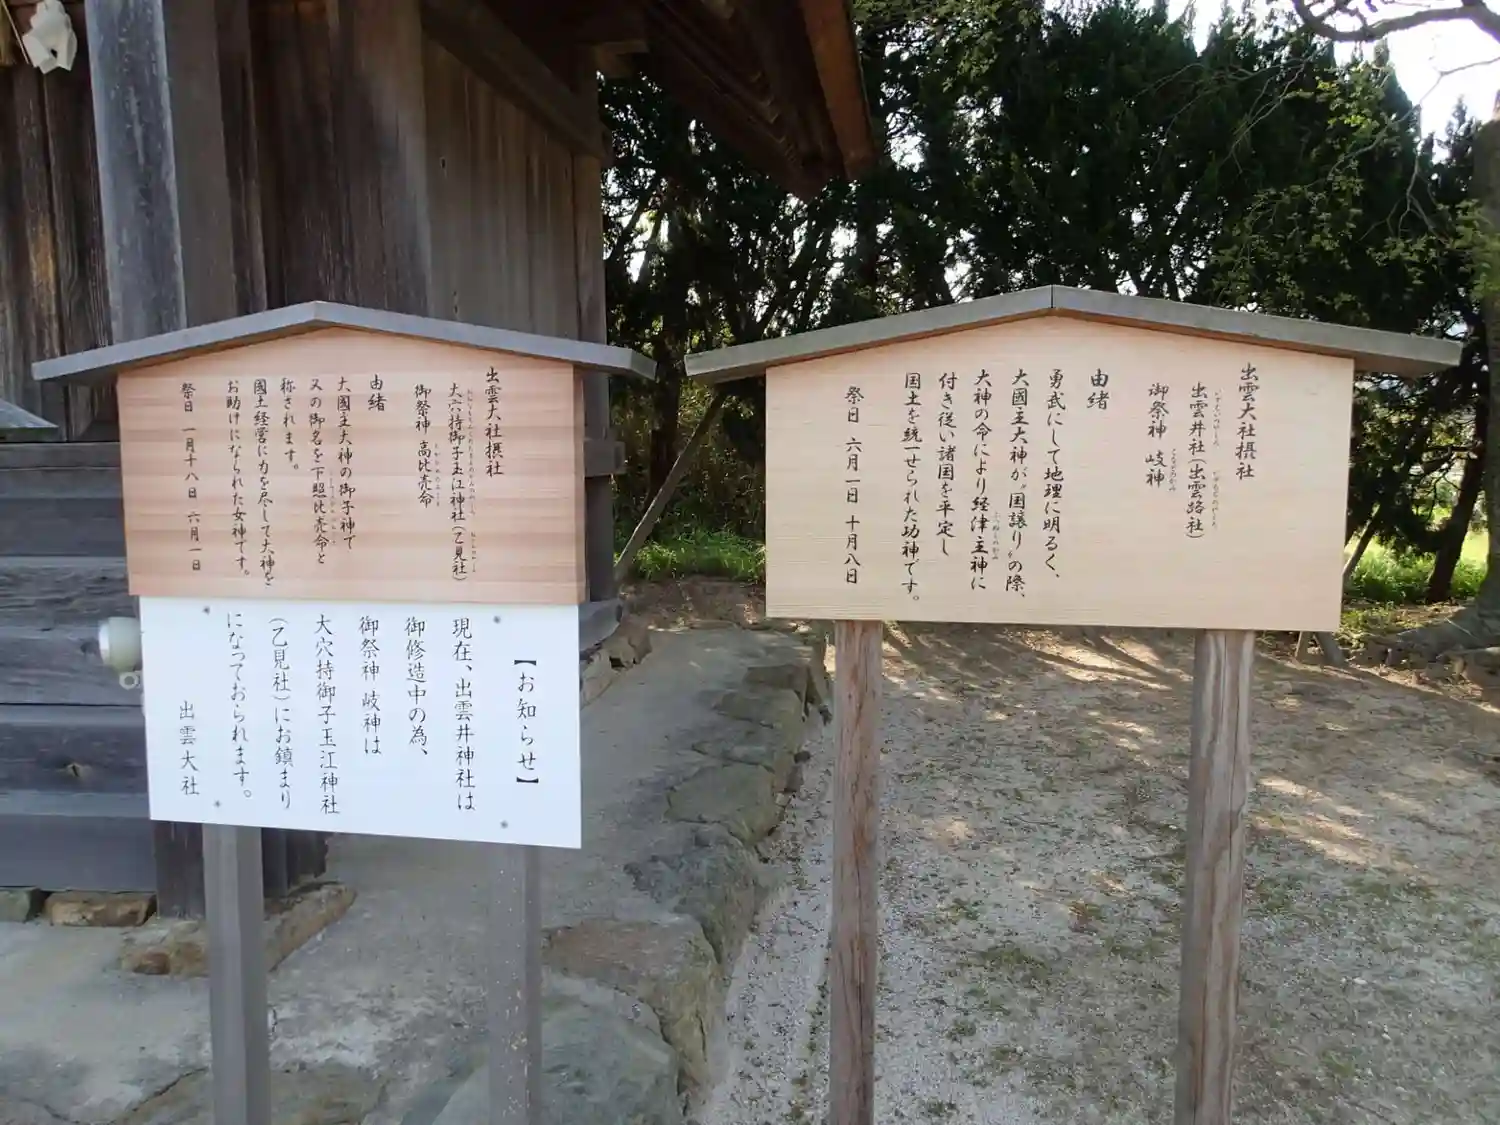 出雲大社摂社
出雲井社(出雲路社)
御祭神 岐神
由緒
勇武にして地理に明るく、
大國主大神が〝国譲り〟の際、
大神の命により経津主神に
付き従い諸国を平定し
国土を統一せられた功神です。
祭日 六月一日 十月八日
出雲大社摂社
大穴持御子玉江神社(乙見社)
御祭神 高比売命
由緒
大國主大神の御子神で
又の御名を下照比売命と
称されます。
國土経営に力を尽して大神を
お助けになられた女神です。
祭日 一月十八日 六月一日
【お知らせ】
現在、出雲井神社は
御修造中の為、
御祭神 岐神は
大穴持御子玉江神社
(乙見社)にお鎮まり
になっておられます。
出雲大社